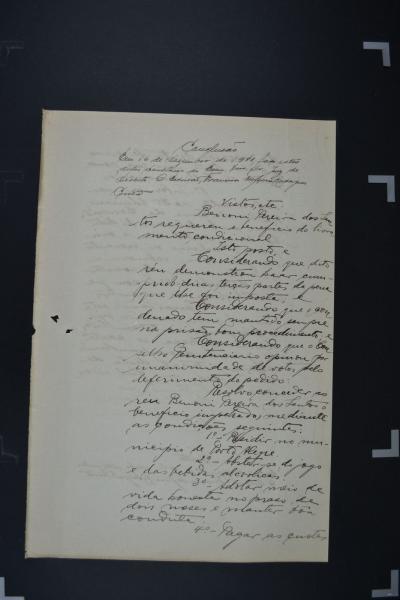 Conclusão
Em 16 de dezembro de 19 faço estes
autos conclusos ao Exmo. Snr. Dr. Juiz de
Direito. O Escrivão,
Vistos, etc
Benoni Pereira dos San
tos requereu o beneficio do livra
mento condicional
Isto posto, e
Considerando que dito
réu demonstrou haver cum
prido duas terças partes da pena
que lhe foi imposta, e
Considerando que o con
denado tem mantido sempre
na prisão, bom procedimento, e
Considerando que o Con
selho Penitenciario opinou por
unanimidade de votos, pelo
deferimento do pedido:
Resolvo conceder ao
réu Benoni Pereira dos Santos o
beneficio impetrado, mediante
as condições seguintes:
1º- Residir no mu
nicipio de Porto Alegre
2º- Abster-se do jogo
e das bebidas alcoolicas
3º- Adotar meio de
vida honesta no praso de
dois meses e manter bôa
conduta
4º- Pagar as custas